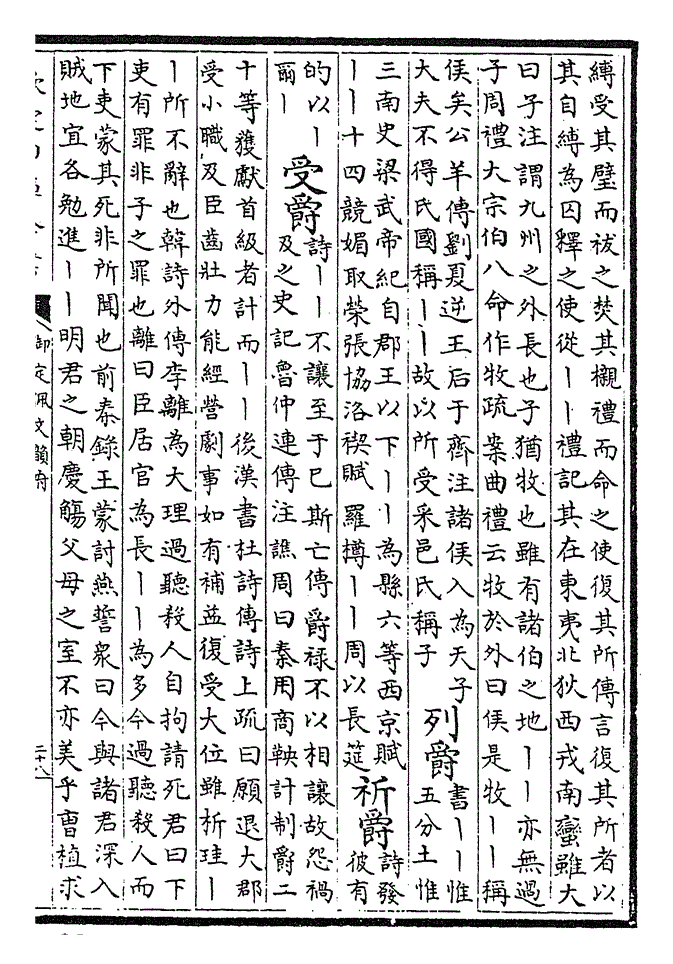 縛受其璧而祓之焚其櫬禮而命之使復其所傳言復其所者以
其自縛為囚釋之使從丨丨禮記其在東夷北狄西戎南蠻雖大
曰子注謂九州之外長也子猶牧也雖有諸伯之地丨丨亦無過
子周禮大宗伯八命作牧疏案曲禮云牧於外曰侯是牧丨丨稱
侯矣公羊傳劉夏逆王后于齊注諸侯入為天子
大夫不得氏國稱丨丨故以所受采邑氏稱子
列爵
書丨丨惟
五分土惟
三南史梁武帝紀自郡王以下丨丨為縣六等西京賦
丨丨十四競媚取榮張協洛禊賦羅樽丨丨周以長筵
祈爵
詩發
彼有
的以丨
爾丨
受爵
詩丨丨不讓至于已斯亡傳爵祿不以相讓故怨禍
及之史記魯仲連傳注譙周曰秦用商鞅計制爵二
十等獲獻首級者計而丨丨後漢書杜詩傳詩上疏曰願退大郡
受小職及臣齒壯力能經營劇事如有補益復受大位雖析珪丨
丨所不辭也韓詩外傳李離為大理過聽殺人自拘請死君曰下
吏有罪非子之罪也離曰臣居官為長丨丨為多今過聽殺人而
下吏蒙其死非所聞也前秦錄王蒙討燕誓衆曰今與諸君深入
賊地宜各勉進丨丨明君之朝慶觴父母之室不亦美乎曹植求
御定佩文韻府
二十八